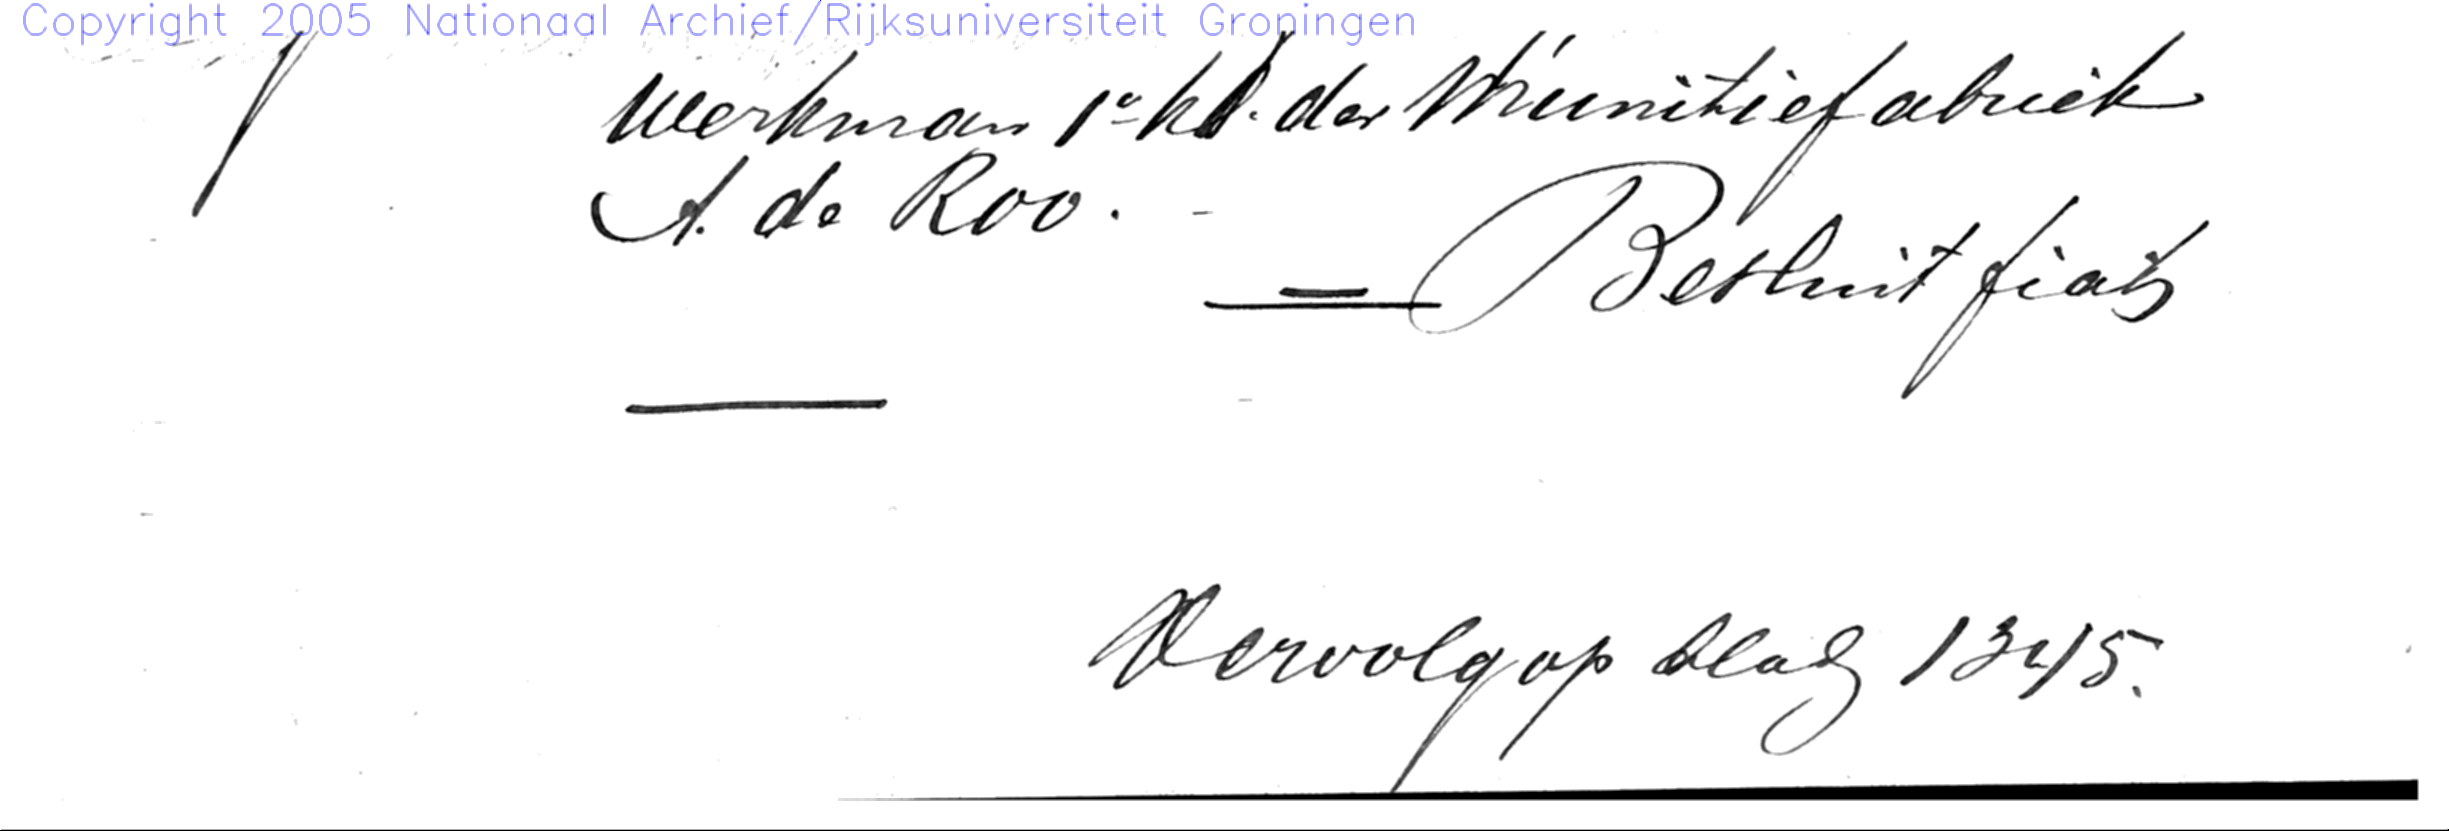 Copyright 2005 Nationaal Archief/Rijksuniversiteit Groningen
Werkman 1e kl. der Munitiefabriek
A. de Roo. -
Besluit fiat
Vervolg op blad 1345.